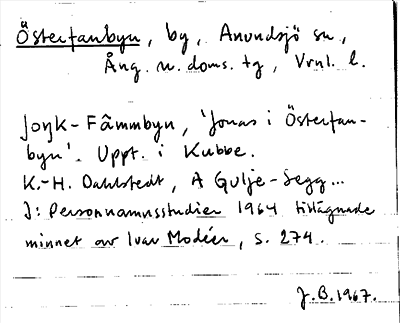 Österfanbyn, by, Anundsjö sn,
Ång. n. doms. tg, Vrnl. l.
Joŋk-Fämmbyn, 'Jonas i Österfan-
byn'. Uppt. i Kubbe.
K.-H. Dahlstedt, A Gulje-Segg...
I: Personnamnsstudier 1964 tillägnade
minnet av Ivar Modéer, s. 274.
J.B. 1967.